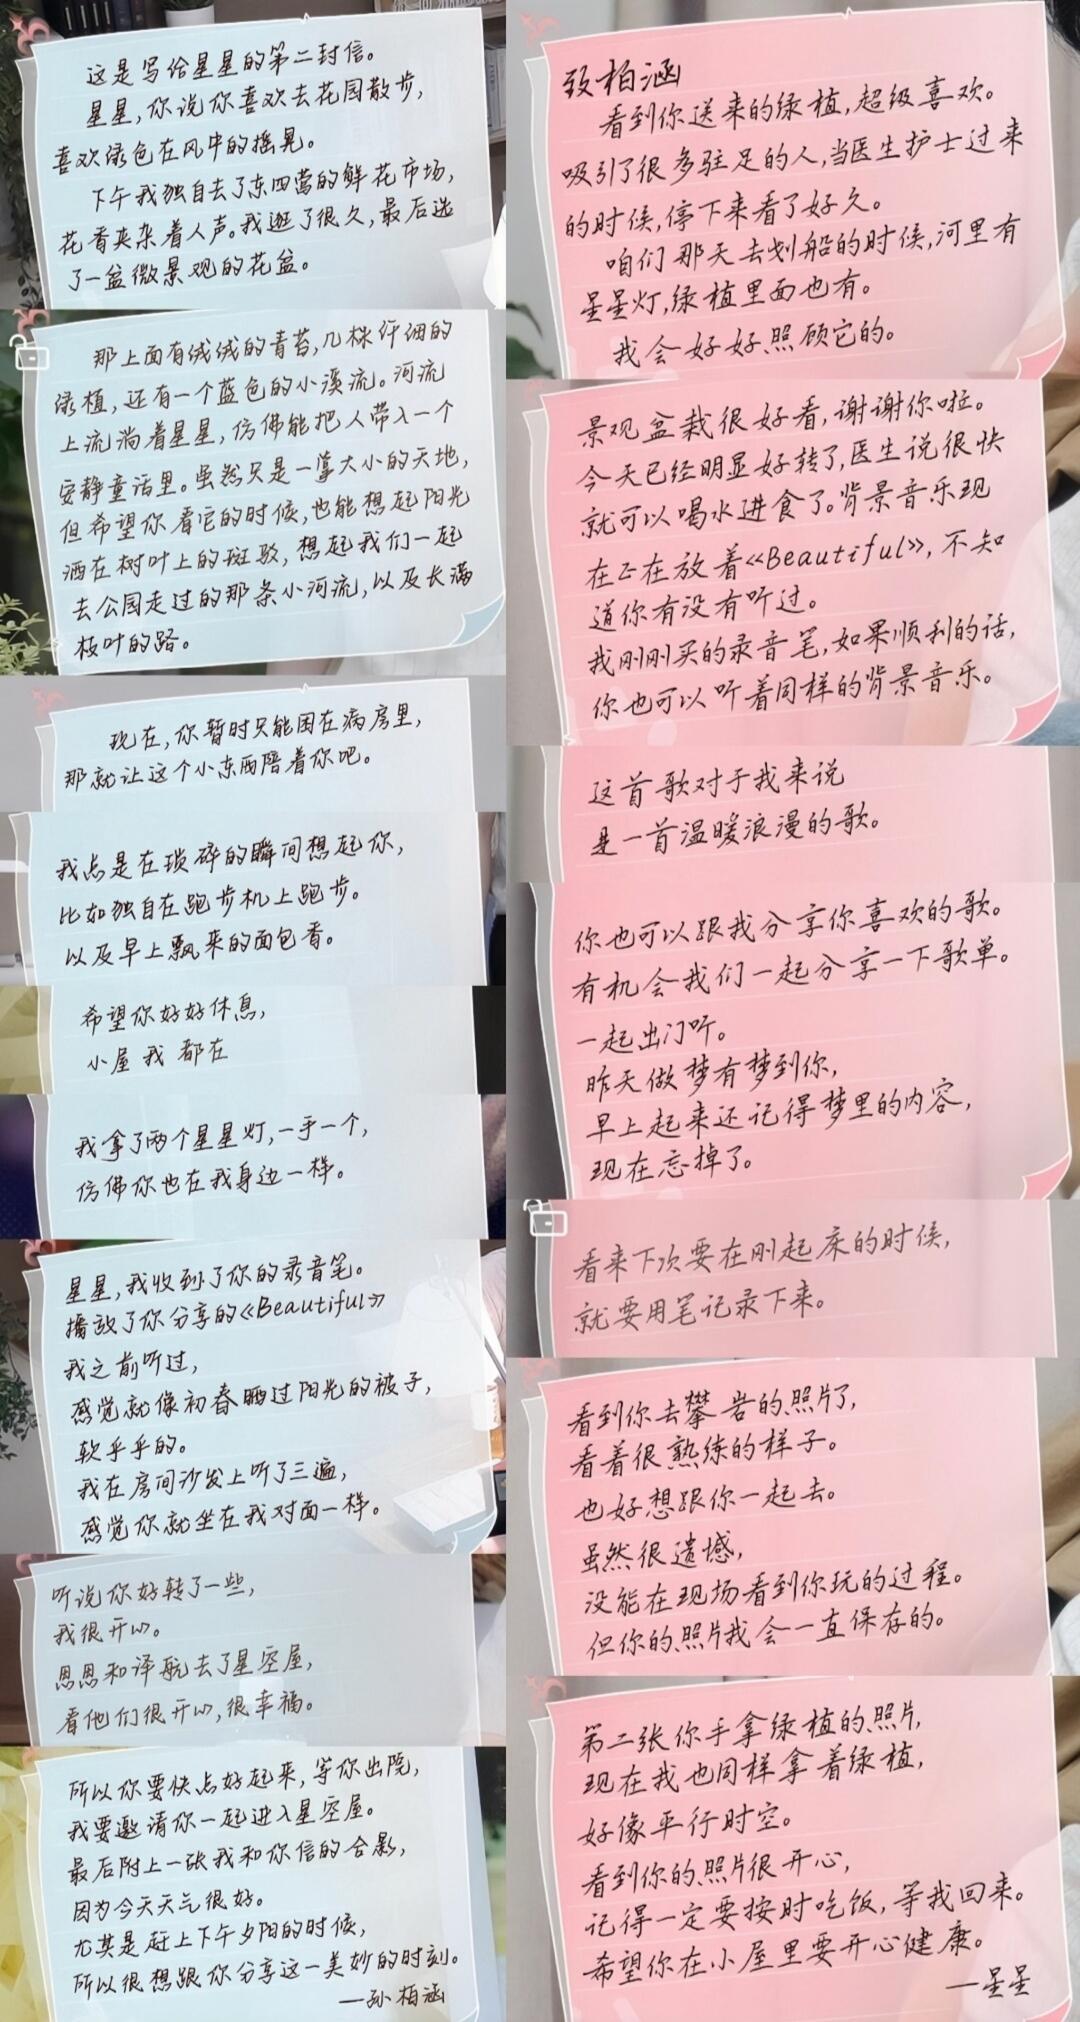 这是写给星星的第二封信。
星星,你说你喜欢去花园散步,
喜欢绿色在风中的摇晃。
下午我独自去了东四营的鲜花市场,
花香夹杂着人声。我逛了很久,最后选
了一盆微景观的花盆。
那上面有绒绒的青苔,几株纤细的
绿植,还有一个蓝色的小溪流。河流
上流淌着星星,仿佛能把人带入一个
安静童话里。虽然只是一掌大小的天地,
但希望你看它的时候,也能想起阳光
洒在树叶上的斑驳,想起我们一起
去公园走过的那条小河流,以及长满
枝叶的路。
现在,你暂时只能困在病房里,
那就让这个小东西陪着你吧。
我总是在琐碎的瞬间想起你,
比如独自在跑步机上跑步。
以及早上飘来的面包香。
希望你好好休息,
小屋 我 都在
我拿了两个星星灯,一手一个,
仿佛你也在我身边一样。
星星,我收到了你的录音笔。
播放了你分享的《Beautiful》
我之前听过,
感觉就像初春晒过阳光的被子,
软乎乎的。
我在房间沙发上听了三遍,
感觉你就坐在我对面一样。
听说你好转了一些,
我很开心。
恩恩和泽航去了星空屋,
看他们很开心,很幸福。
所以你要快点好起来,等你出院,
我要邀请你一起进入星空屋。
最后附上一张我和你信的合影,
因为今天天气很好。
尤其是赶上下午夕阳的时候,
所以很想跟你分享这一美妙的时刻。
—孙柏涵
致柏涵
看到你送来的绿植,超级喜欢。
吸引了很多驻足的人,当医生护士过来
的时候,停下来看了好久。
咱们那天去划船的时候,河里有
星星灯,绿植里面也有。
我会好好照顾它的。
景观盆栽很好看,谢谢你啦。
今天已经明显好转了,医生说很快
就可以喝水进食了。背景音乐现
在正在放着《Beautiful》,不知
道你有没有听过。
我刚刚买的录音笔,如果顺利的话,
你也可以听着同样的背景音乐。
这首歌对于我来说
是一首温暖浪漫的歌。
你也可以跟我分享你喜欢的歌。
有机会我们一起分享一下歌单。
一起出门听。
昨天做梦有梦到你,
早上起来还记得梦里的内容,
现在忘掉了。
看来下次要在刚起床的时候,
就要用笔记录下来。
看到你去攀岩的照片了,
看着很熟练的样子。
也好想跟你一起去。
虽然很遗憾,
没能在现场看到你玩的过程。
但你的照片我会一直保存的。
第二张你手拿绿植的照片,
现在我也同样拿着绿植,
好像平行时空。
看到你的照片很开心,
记得一定要按时吃饭,等我回来。
希望你在小屋里要开心健康。
—星星